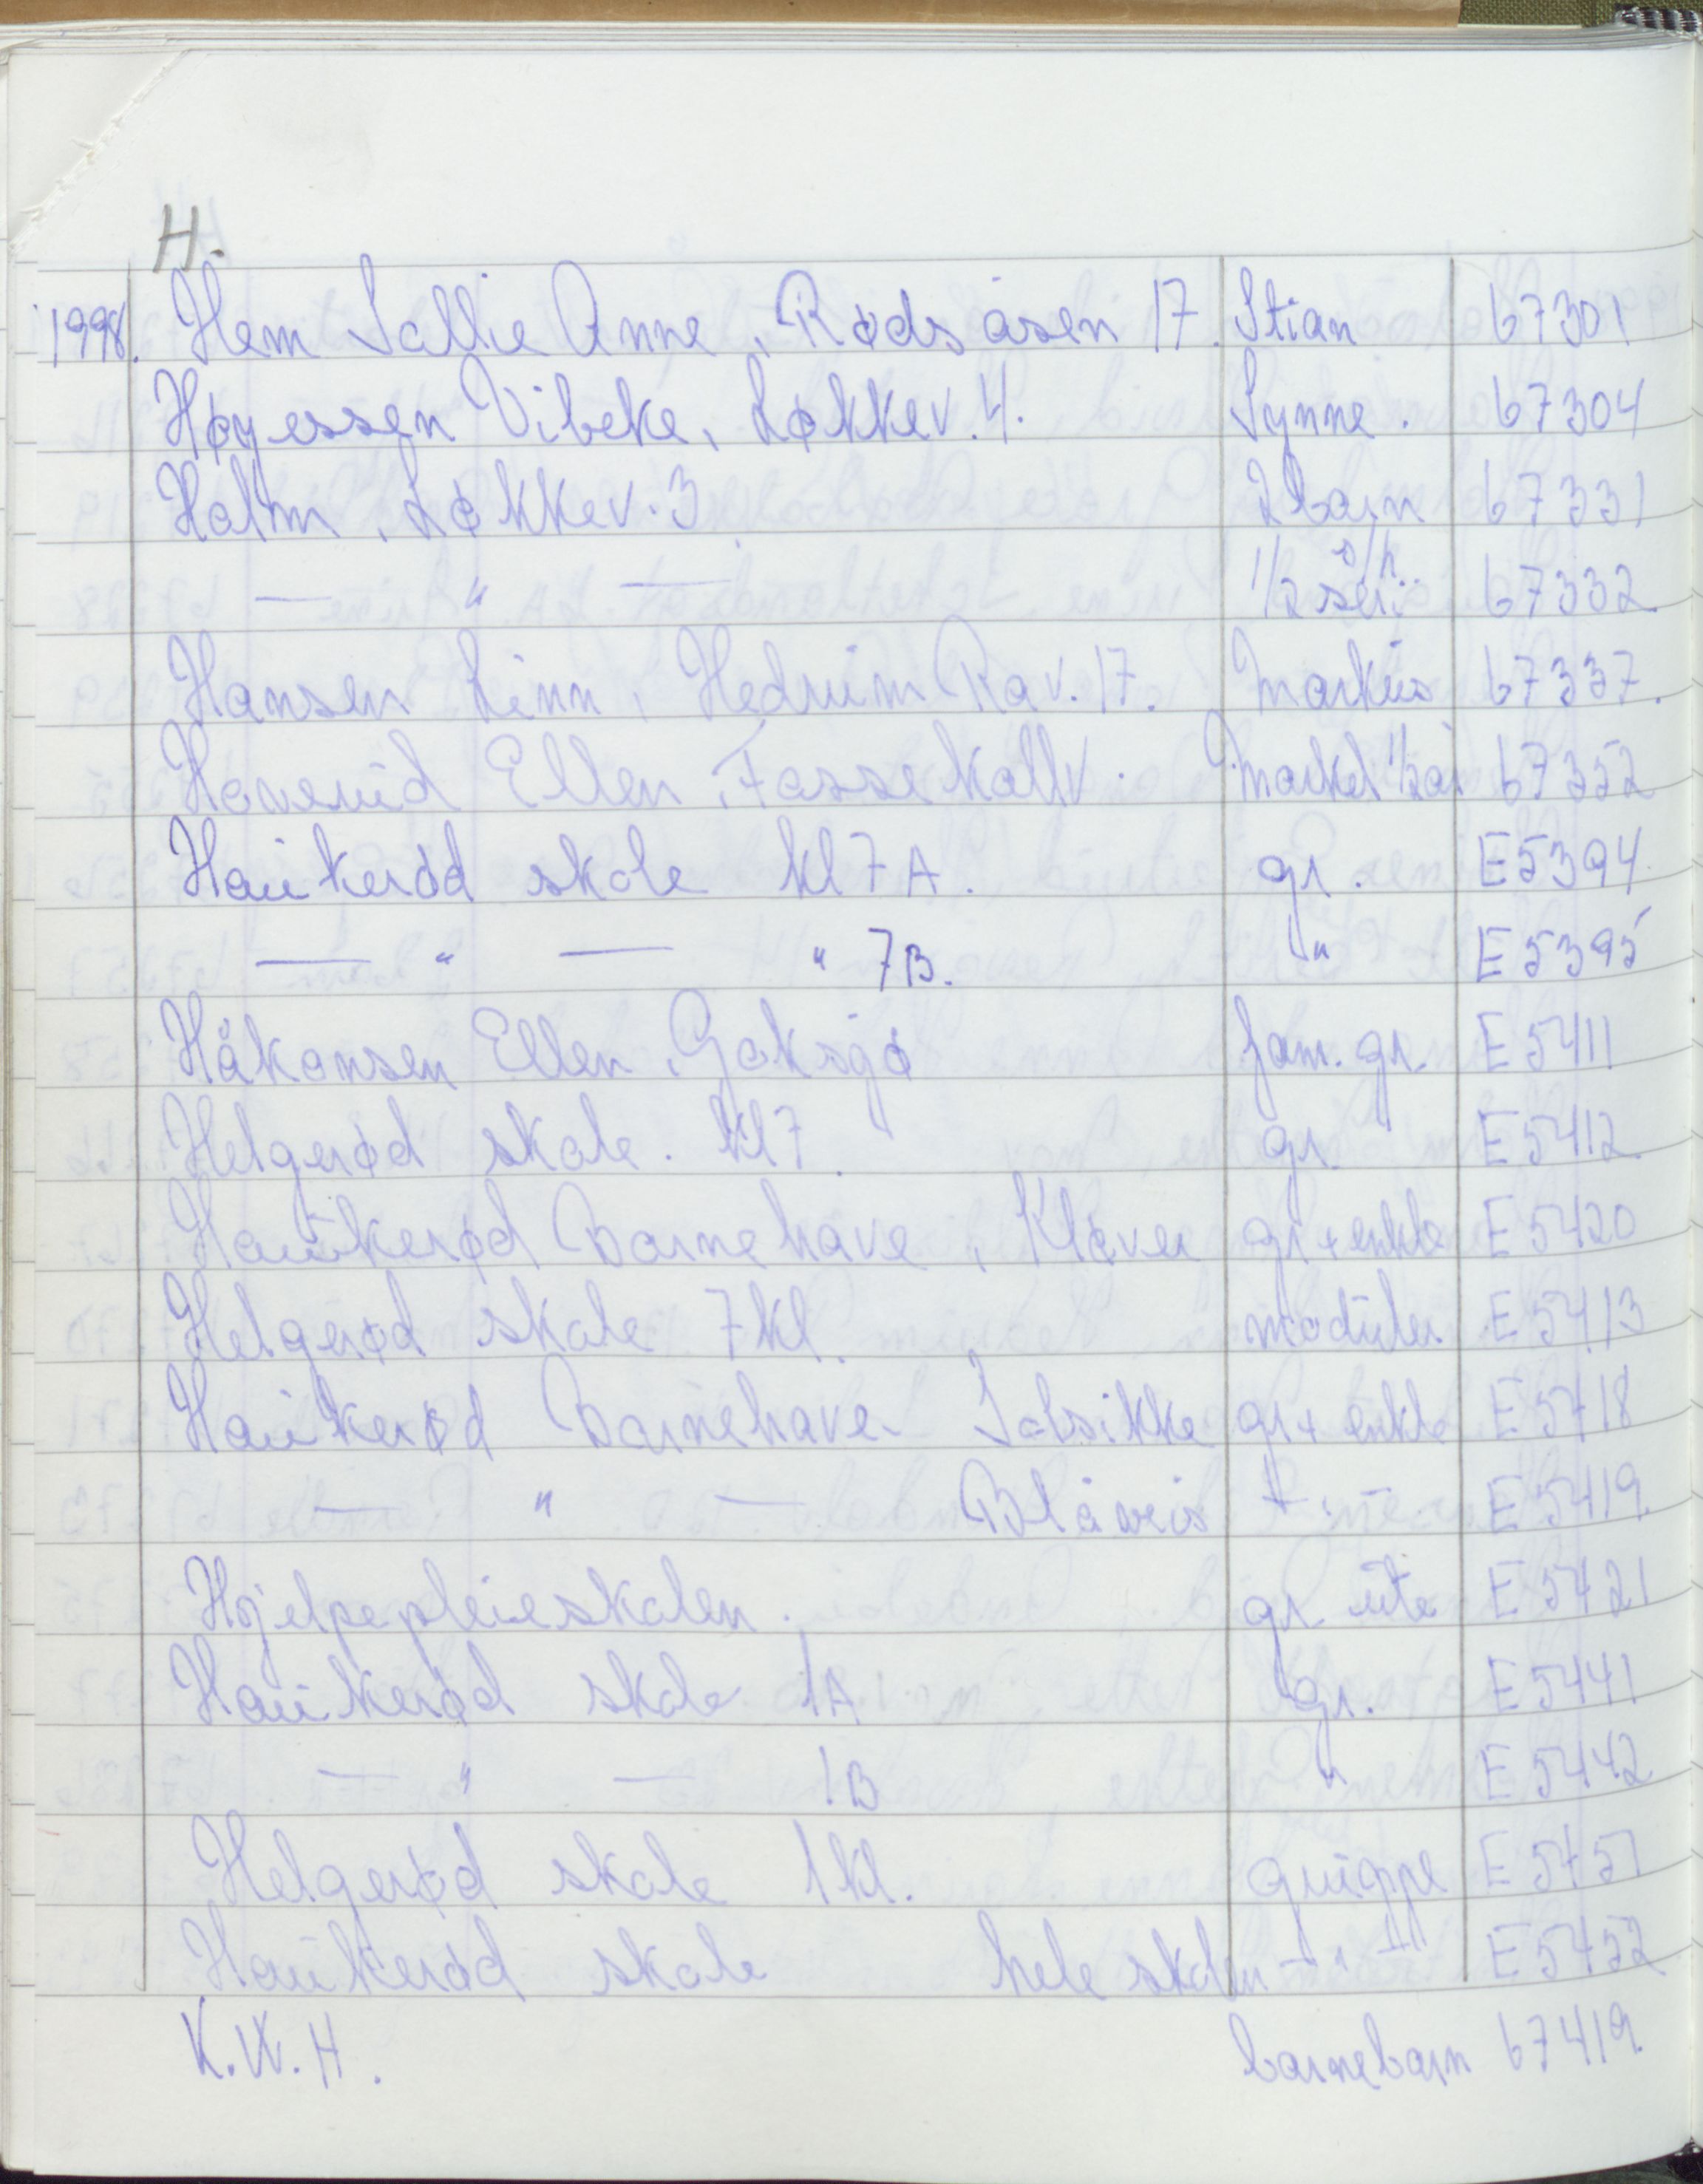 H.
1998. Hem Sallie Anne, Rødsåsen 17. Stian 67301
Høyessen Vibeke, Løkkev. 4. Synne. 67304
Holm, Løkkev. 3 2 barn 67331
— " — 1/2 seri s/h.. 67332
Hansen Linn, Hedrum Rav. 17. Markus 67337.
Haverud Ellen, Fossekallv. 1/2 år 67352
Haukerød skole kl 7A. gr. E5394
— " — " 7B. " E5395
Håkonsen Ellen, Goksjø fam. gr. E5411
Helgerød skole. kl 7. gr. E5412
Haukerød Barnehave, Kløver gr + enkle E5420
Helgerød skole 7kl. moduler E5413
Haukerød Barnehave Solsikke gr + enkle E5418
— " — Blåveis E5419
Hjelpepleieskolen. gr. ute E5421
Haukerød skole 1A gr. E5441
— " — 1B " E5442
Helgerød skole 1kl. gruppe E5451
Haukerød skole hele skolen E5452
K.W.H. barnebarn 67419.